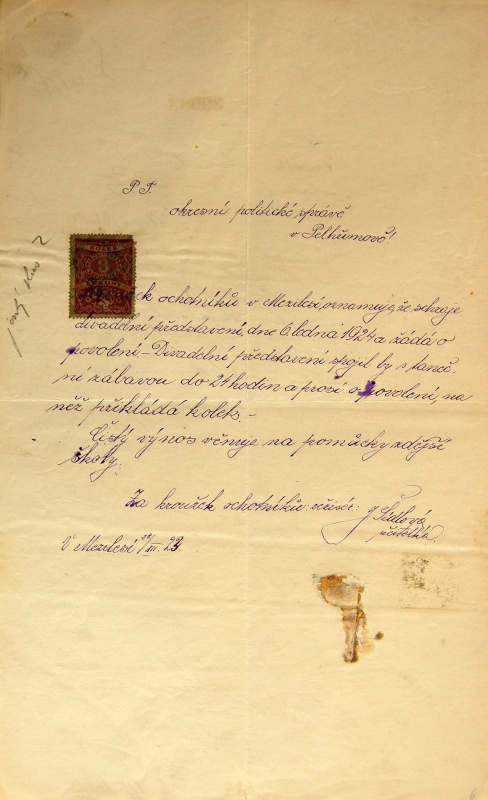 P.T.
okresní politické správě
v Pelhřimově!
ochotníků v Mezilesí, oznamuje, že sehraje
divadelní představení, dne 6. ledna 1924 a žádá o
povolení. – Divadelní představení spojil by s taneč-
ní zábavou do 24 hodin a prosí o povolení, na
něž přikládá kolek. –
Čistý výnos věnuje na pomůcky zdější
školy.
Za kroužek ochotníků: režisér:
učitelka.
V Mezilesí 23.